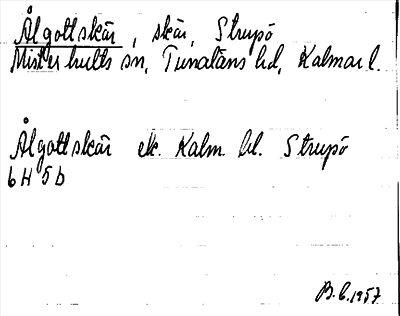 Ålgottskär, skär, Strupö
Misterhults sn, Tunaläns hd, Kalmar l.
Ålgottskär ek. Kalm. bl. Strupö
6 H 5 b
B.C. 1957